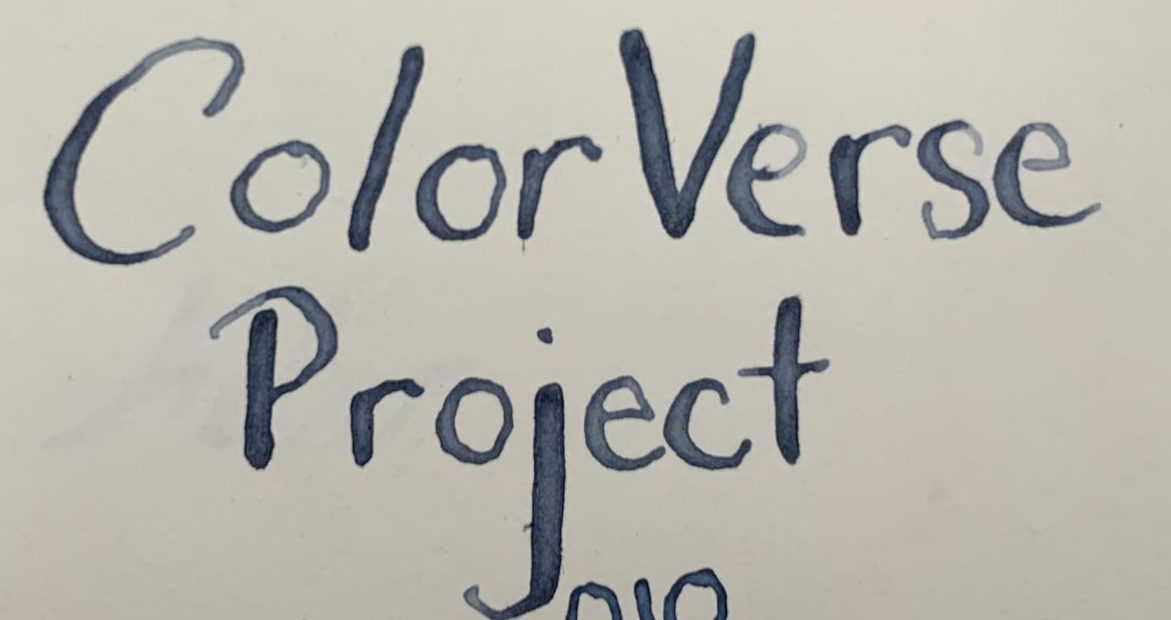 ColorVerse
Project